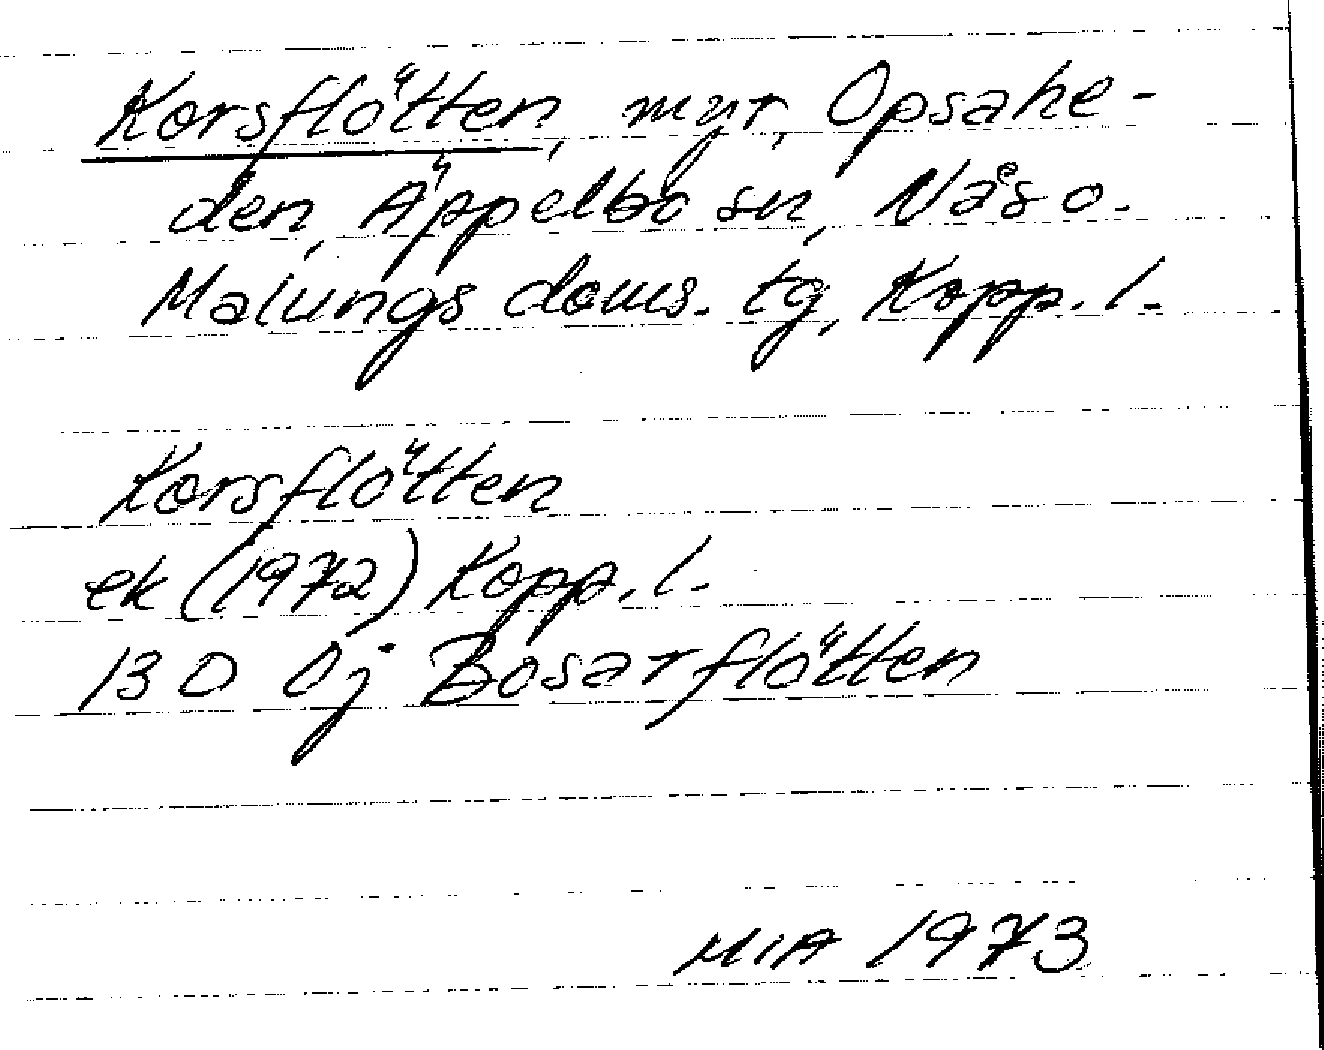 Korsflötten, myr, Opsahe-
den, Äppelbo sn, Nås o.
Malungs doms. tg, Kopp. l.
Korsflötten
ek (1972) Kopp. l.
13 D 0j Bosarflötten
MIA 1973